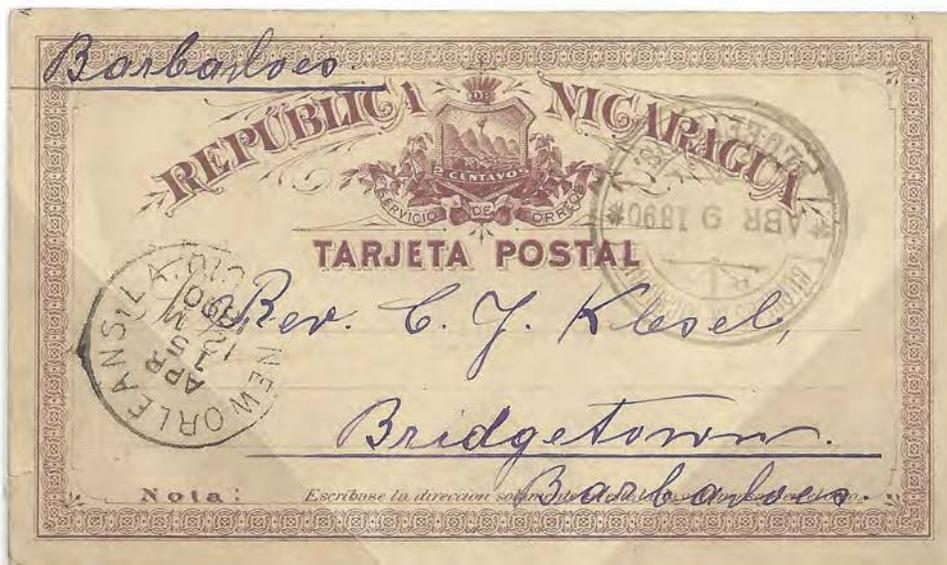 Barbadoes.
REPÚBLICA DE NICARAGUA
2 CENTAVOS
SERVICIO DE CORREO
TARJETA POSTAL
ABR 9 1890
NEW ORLEANS, LA.
APR
'90
Rev. C. J. Klesel,
Bridgetown.
Barbadoes.
Nota: Escribase la direccion solamente